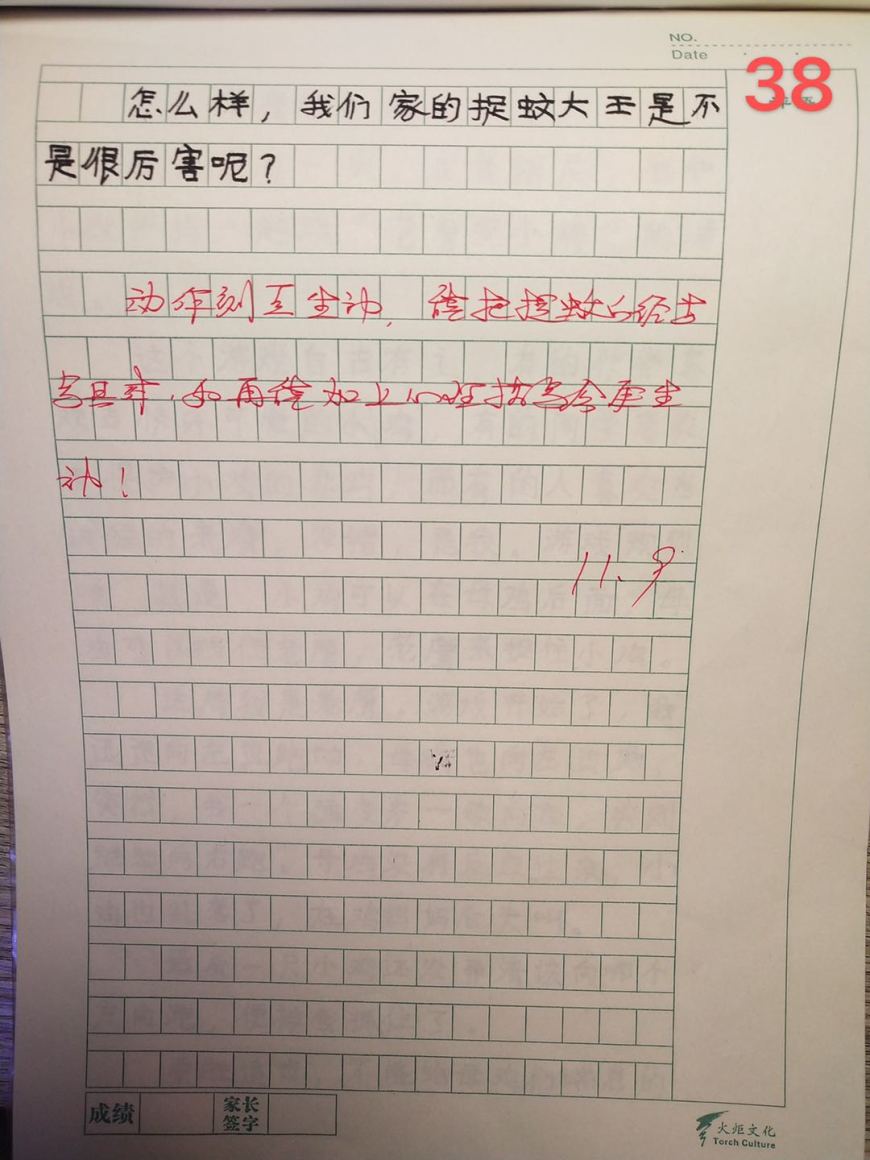 NO.
Date
38
怎么样，我们家的捉蚊大王是不
是很厉害呢？
动作刻画生动，能把捉蚊的经过
写具体，如再能加上心理描写会更生
动！
11.9
成绩
家长
签字
火炬文化
Torch Culture